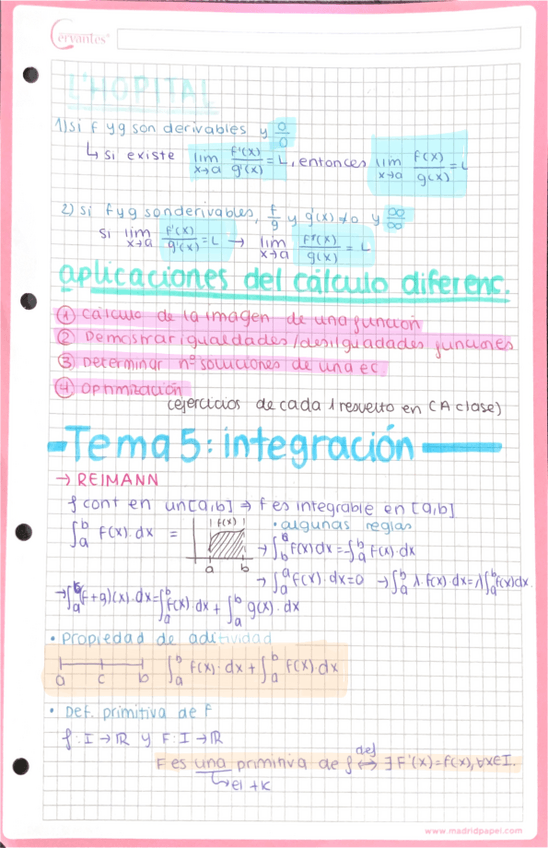 Cervantes®
L'HOPITAL
1) si f y g son derivables y 0/0
↳ si existe lim x→a f'(x)/g'(x) = L, entonces lim x→a f(x)/g(x) = L
2) si f y g son derivables, f/g y g'(x) ≠ 0 y ∞/∞
si lim x→a f'(x)/g'(x) = L → lim x→a f(x)/g(x) = L
aplicaciones del cálculo diferenc.
① cálculo de la imagen de una función
② Demostrar igualdades/desigualdades funciones
③ Determinar nº soluciones de una ec
④ optimización
(ejercicios de cada 1 resuelto en CA clase)
Tema 5: integración
→ REIMANN
f cont en un [a,b] ⇒ f es integrable en [a,b]
∫ₐᵇ f(x)·dx = f(x) a b
• algunas reglas
→ ∫ f(x)dx = -∫ₐᵇ f(x)·dx
→ ∫ₐᵃ f(x)·dx = 0 → ∫ₐᵇ λ·f(x)·dx = λ∫ₐᵇ f(x)dx.
→ ∫ₐᵇ (f+g)(x)·dx = ∫ₐᵇ f(x)·dx + ∫ₐᵇ g(x)·dx
• Propiedad de aditividad
a c b ∫ₐᵇ f(x)·dx + ∫ₐᵇ f(x)dx
• Def. primitiva de f
f: I → ℝ y F: I → ℝ
F es una primitiva de f ⟷ def ∃ F'(x) = f(x), ∀x∈I.
↳ el +K
www.madridpapel.com